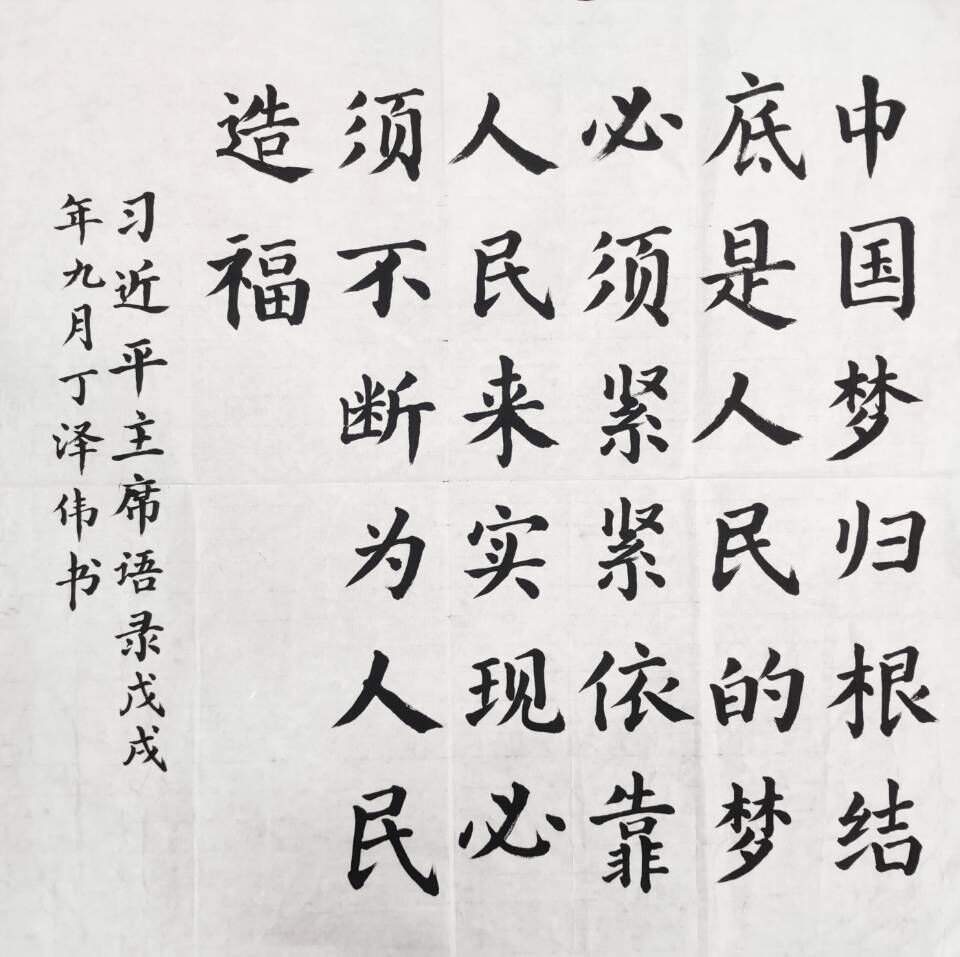 中国梦归根结
底是人民的梦
必须紧紧依靠
人民来实现必
须不断为人民
造福
习近平主席语录戊戌
年九月丁泽伟书